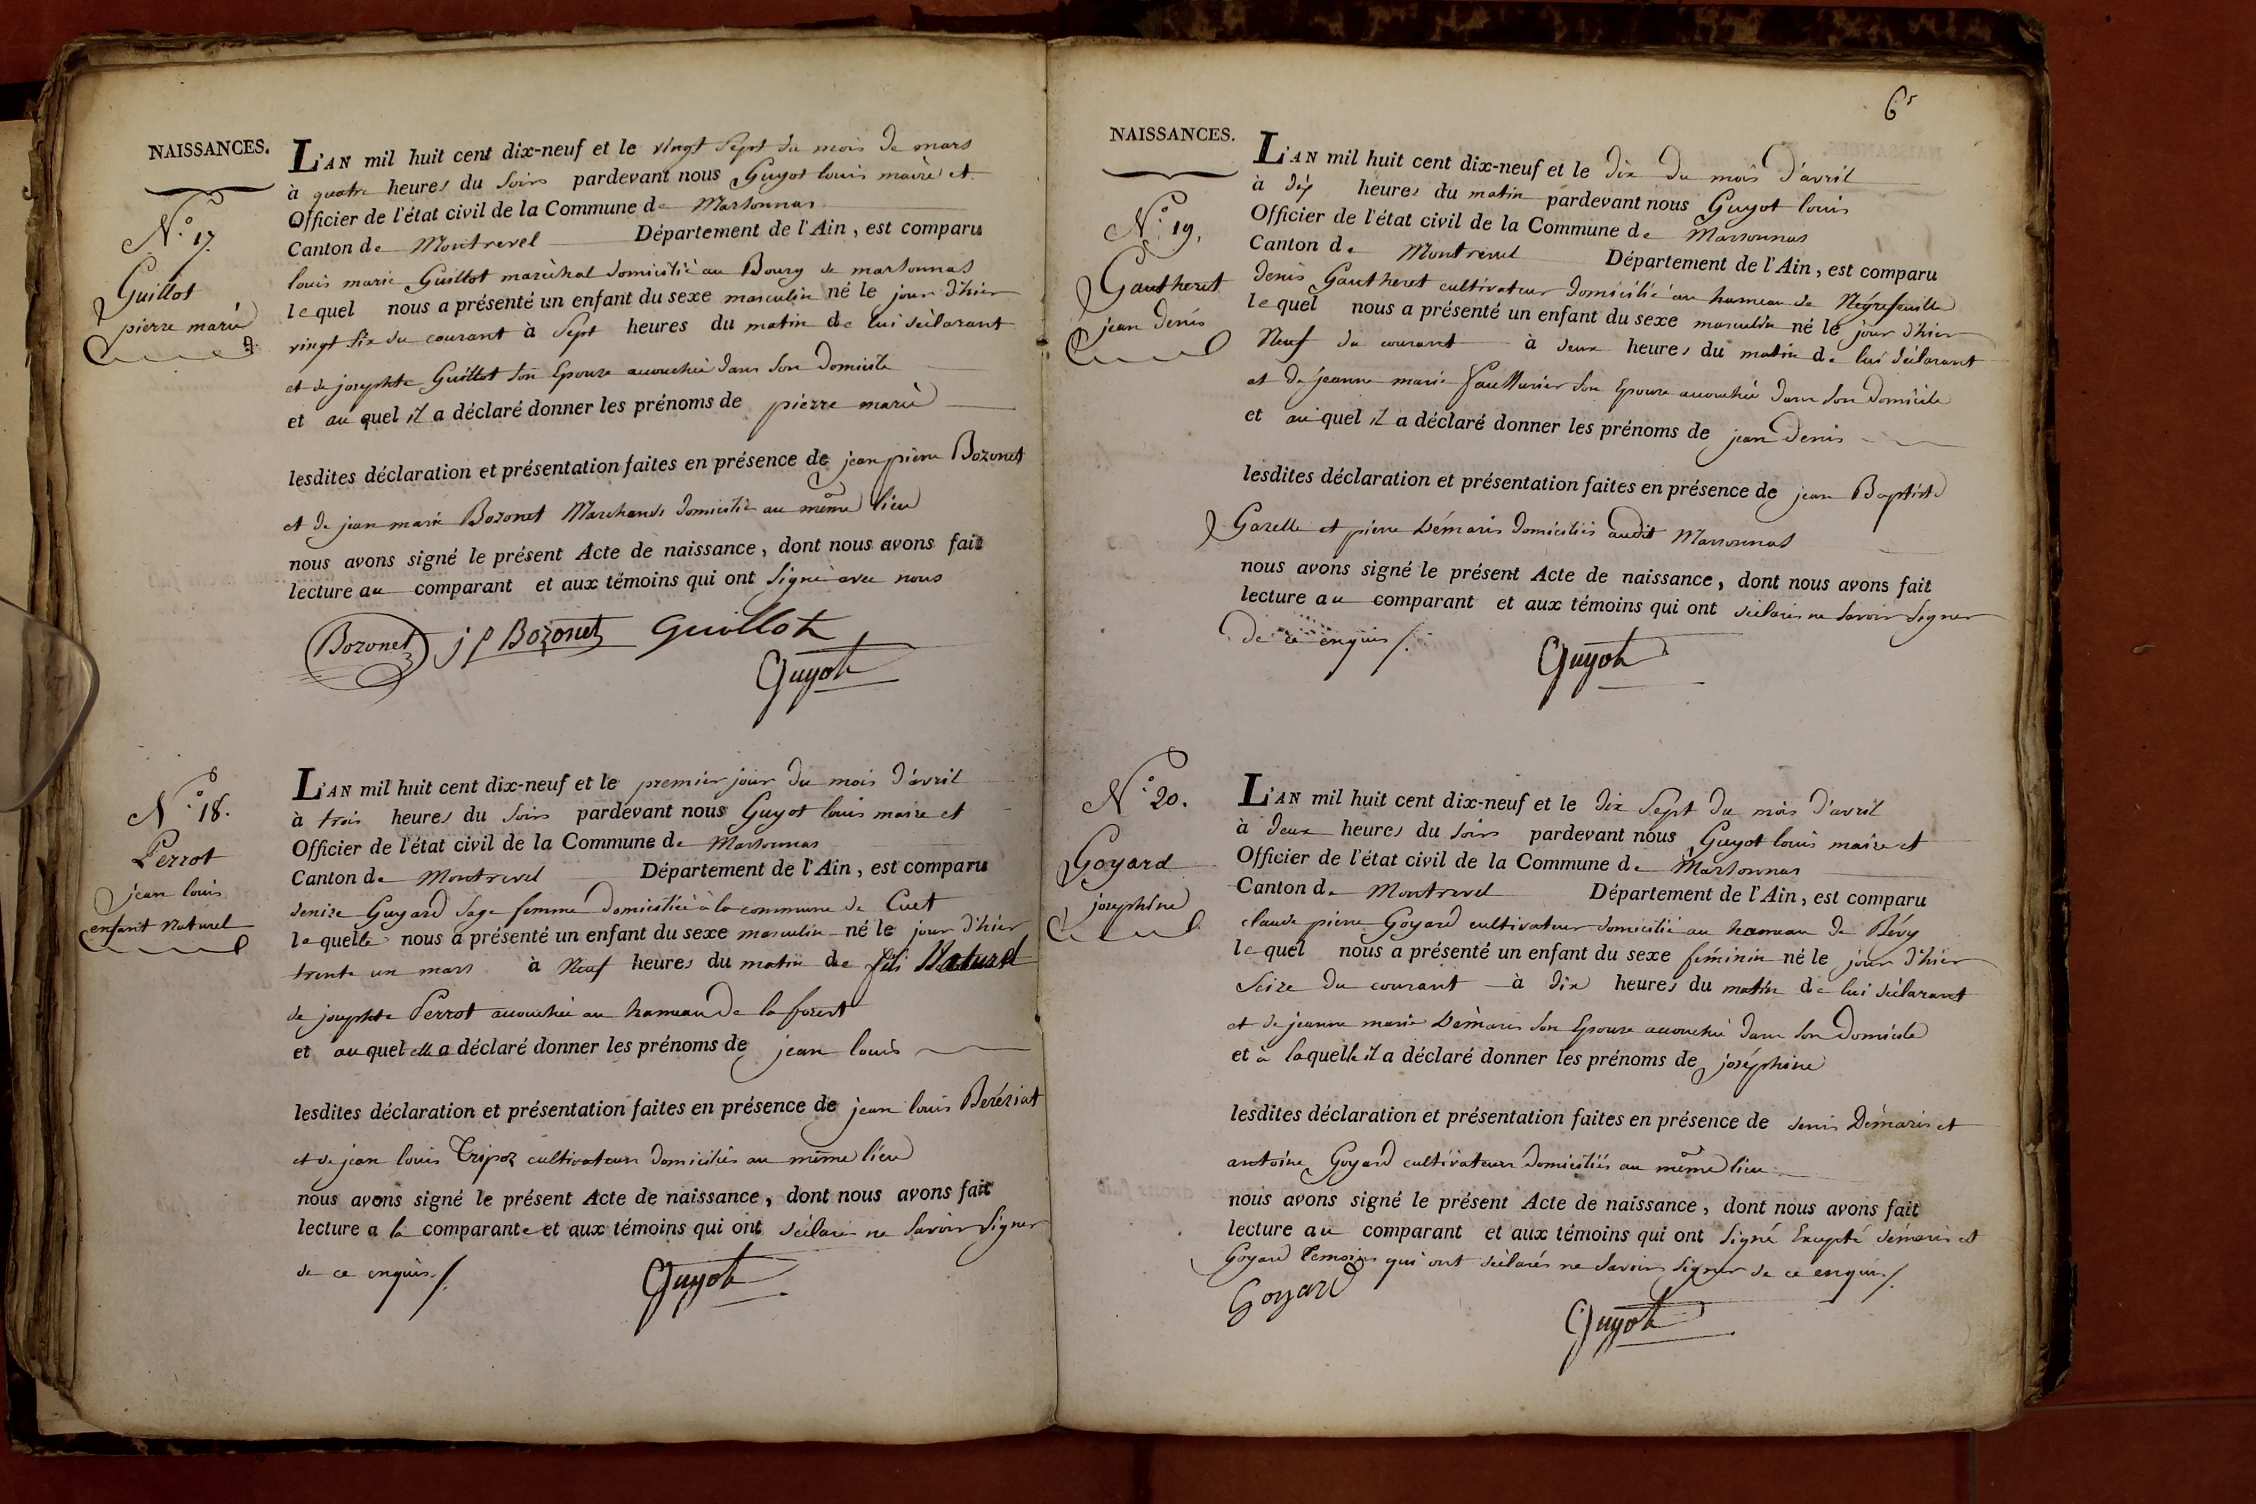 NAISSANCES.
N.o 17.
Guillot
pierre marie
L'AN mil huit cent dix-neuf et le vingt sept du mois de mars
à quatre heures du soir pardevant nous Guyot louis maire et
Officier de l'état civil de la Commune de Marsonnas
Canton de Montrevel Département de l'Ain, est comparu
louis marie Guillot maréchal domicilié au Bourg de marsonnas
lequel nous a présenté un enfant du sexe masculin né le jour d'hier
vingt six du courant à sept heures du matin de lui déclarant
et de josephte Guillot son Epouse accouchée dans son Domicile
et au quel il a déclaré donner les prénoms de pierre marie
lesdites déclaration et présentation faites en présence de jean pierre Bozonet
et de jean marie Bozonet Marchands domiciliés au même lieu
nous avons signé le présent Acte de naissance, dont nous avons fait
lecture au comparant et aux témoins qui ont signé avec nous
Bozonet j p Bozonet Guillot
Guyot
N.o 18.
Perrot
jean louis
enfant naturel
L'AN mil huit cent dix-neuf et le premier jour du mois d'avril
à trois heures du soir pardevant nous Guyot louis maire et
Officier de l'état civil de la Commune de Marsonnas
Canton de Montrevel Département de l'Ain, est comparu
denize Guyard sage femme domiciliée à la commune de Cuet
laquelle nous a présenté un enfant du sexe masculin né le jour d'hier
trente un mars à Neuf heures du matin de fils Naturel
de josephte Perrot accouchée au hameau de la forest
et auquel elle a déclaré donner les prénoms de jean louis
lesdites déclaration et présentation faites en présence de jean louis Beréziat
et de jean louis Tripoz cultivateurs domiciliés au même lieu
nous avons signé le présent Acte de naissance, dont nous avons fait
lecture a la comparante et aux témoins qui ont déclarés ne savoir signer
de ce enquis./.
Guyot
6
NAISSANCES.
N.o 19.
Gautheret
jean denis
L'AN mil huit cent dix-neuf et le dix du mois d'avril
à dix heures du matin pardevant nous Guyot louis
Officier de l'état civil de la Commune de Marsonnas
Canton de Montrevel Département de l'Ain, est comparu
denis Gautheret cultivateur domicilié au hameau de Négrefeuille
lequel nous a présenté un enfant du sexe masculin né le jour d'hier
Neuf du courant à deux heures du matin de lui déclarant
et de jeanne marie son Epouse accouchée dans son domicile
et au quel il a déclaré donner les prénoms de jean Denis
lesdites déclaration et présentation faites en présence de jean Baptiste
Gazelle et pierre Démaris domiciliés audit Marsonnas
nous avons signé le présent Acte de naissance, dont nous avons fait
lecture au comparant et aux témoins qui ont déclarés ne savoir signer
de ce enquis/.
Guyot
N.o 20.
Goyard
josephine
L'AN mil huit cent dix-neuf et le dix sept du mois d'avril
à deux heures du soir pardevant nous Guyot louis maire et
Officier de l'état civil de la Commune de Marsonnas
Canton de Montrevel Département de l'Ain, est comparu
claude pierre Goyard cultivateur domicilié au hameau de Bévy
lequel nous a présenté un enfant du sexe féminin né le jour d'hier
seize du courant à dix heures du matin de lui déclarant
et de jeanne marie Démaris son Epouse accouchée dans son domicile
et à laquelle il a déclaré donner les prénoms de joséphine
lesdites déclaration et présentation faites en présence de denis Démaris et
antoine Goyard cultivateurs domiciliés au même lieu
nous avons signé le présent Acte de naissance, dont nous avons fait
lecture au comparant et aux témoins qui ont signé Excepté démaris et
Goyard temoins qui ont déclarés ne savoir signer de ce enquis./.
Goyard
Guyot